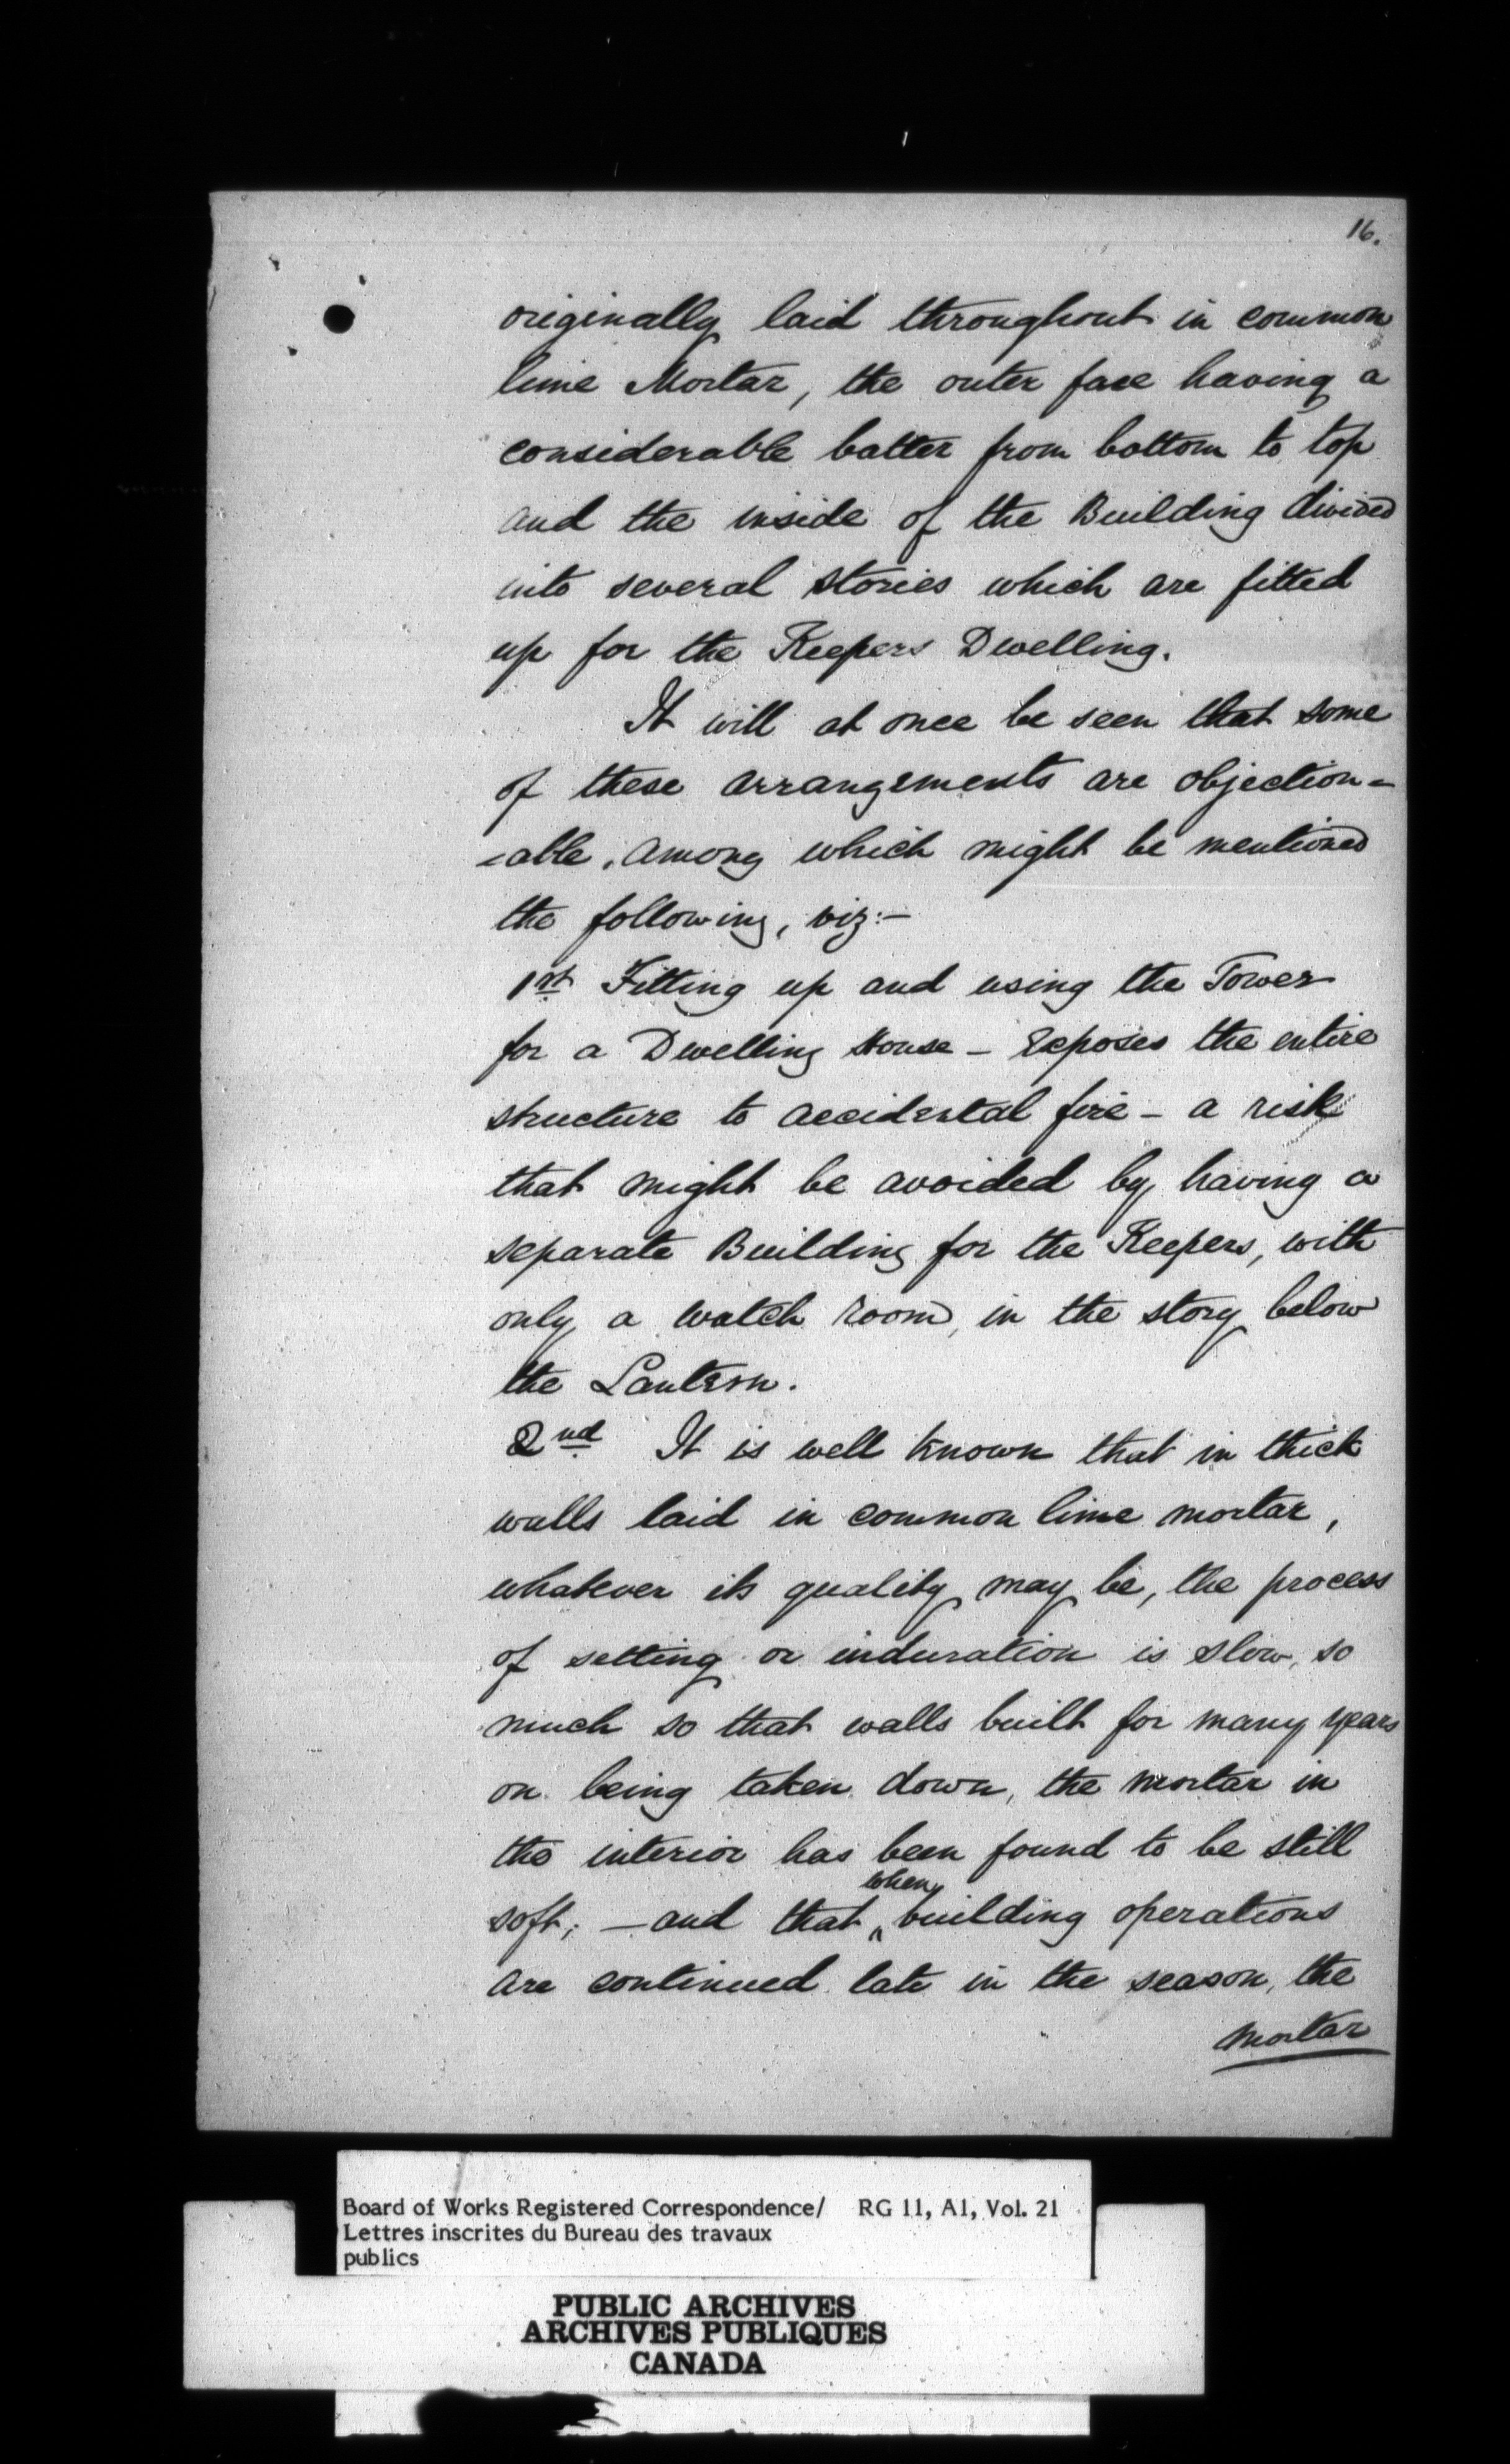 16.
originally laid throughout in common
lime Mortar, the outer face having a
considerable batter from bottom to top
and the inside of the Building divided
into several stories which are fitted
up for the Keepers Dwelling.
It will at once be seen that some
of these arrangements are objection=
=able, among which might be mentioned
the following, viz:—
1st Fitting up and using the Tower
for a Dwelling House — Exposes the entire
structure to accidental fire — a risk
that might be avoided by having a
separate Building for the Keepers, with
only a watch room, in the story below
the Lantern.
2nd It is well known that in thick
walls laid in common lime mortar,
whatever its quality may be, the process
of setting or induration is slow, so
much so that walls built for many years
on being taken down, the mortar in
the interior has been found to be still
soft; — and that when building operations
are continued late in the season, the
mortar
Board of Works Registered Correspondence/ RG 11, A1, Vol. 21
Lettres inscrites du Bureau des travaux
publics
PUBLIC ARCHIVES
ARCHIVES PUBLIQUES
CANADA